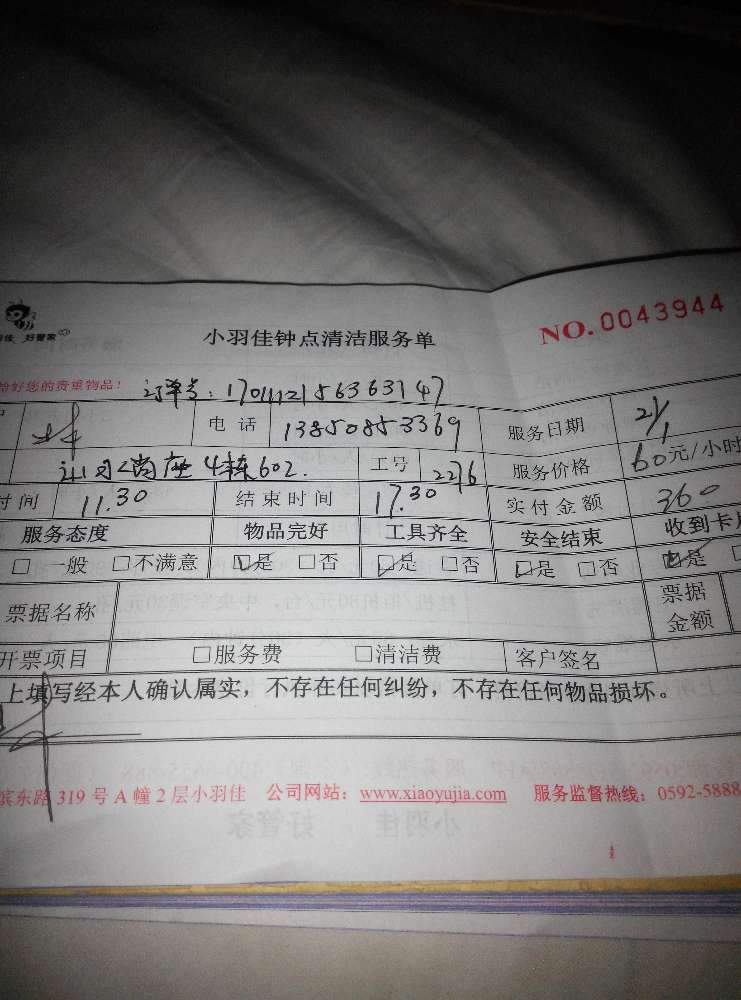 好管家
小羽佳钟点清洁服务单
NO.0043944
好您的贵重物品！
订单号：
林 电话 13850853369 服务日期 21/1
4栋602. 工号 2276 服务价格 60元/小时
时间 11.30 结束时间 17.30 实付金额 360
服务态度 物品完好 工具齐全 安全结束 收到卡片
□一般 □不满意 ☑是 □否 ☑是 □否 ☑是 □否 ☑是 □
票据名称 票据金额
开票项目 □服务费 □清洁费 客户签名
上填写经本人确认属实，不存在任何纠纷，不存在任何物品损坏。
林
滨东路 319 号 A 幢 2 层小羽佳 公司网站：www.xiaoyujia.com 服务监督热线：0592-5888